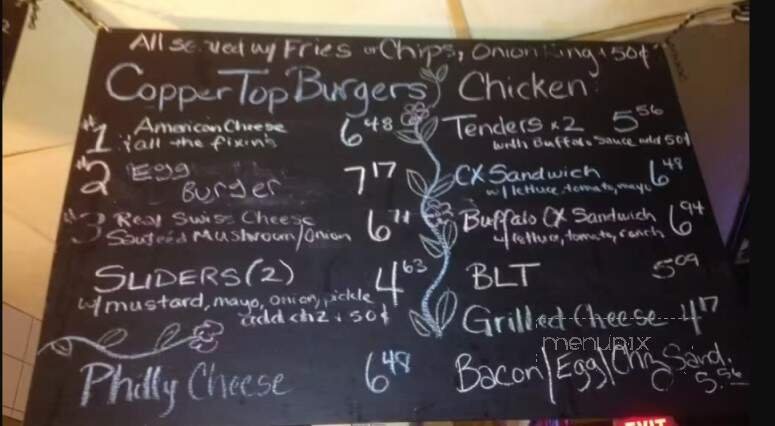 All served w/ Fries or Chips, Onion Ring + 50¢
CopperTop Burgers
#1 American Cheese 6 48
+ all the fixin's
#2 Egg Burger 7 17
#3 Real Swiss Cheese
Sauteéd Mushroom/Onion
SLIDERS (2) 4 63
w/mustard, mayo, onion, pickle
add chz + 50¢
Philly Cheese 6 48
Chicken
Tenders x2 5 56
with Buffalo Sauce add 50¢
CX Sandwich 6 48
w/lettuce, tomato, mayo
Buffalo CX Sandwich 6 94
w/lettuce, tomato, ranch
BLT 5 09
Grilled Cheese 4 17
Bacon/Egg/Chz Sand. 5.56
menupix
EXIT